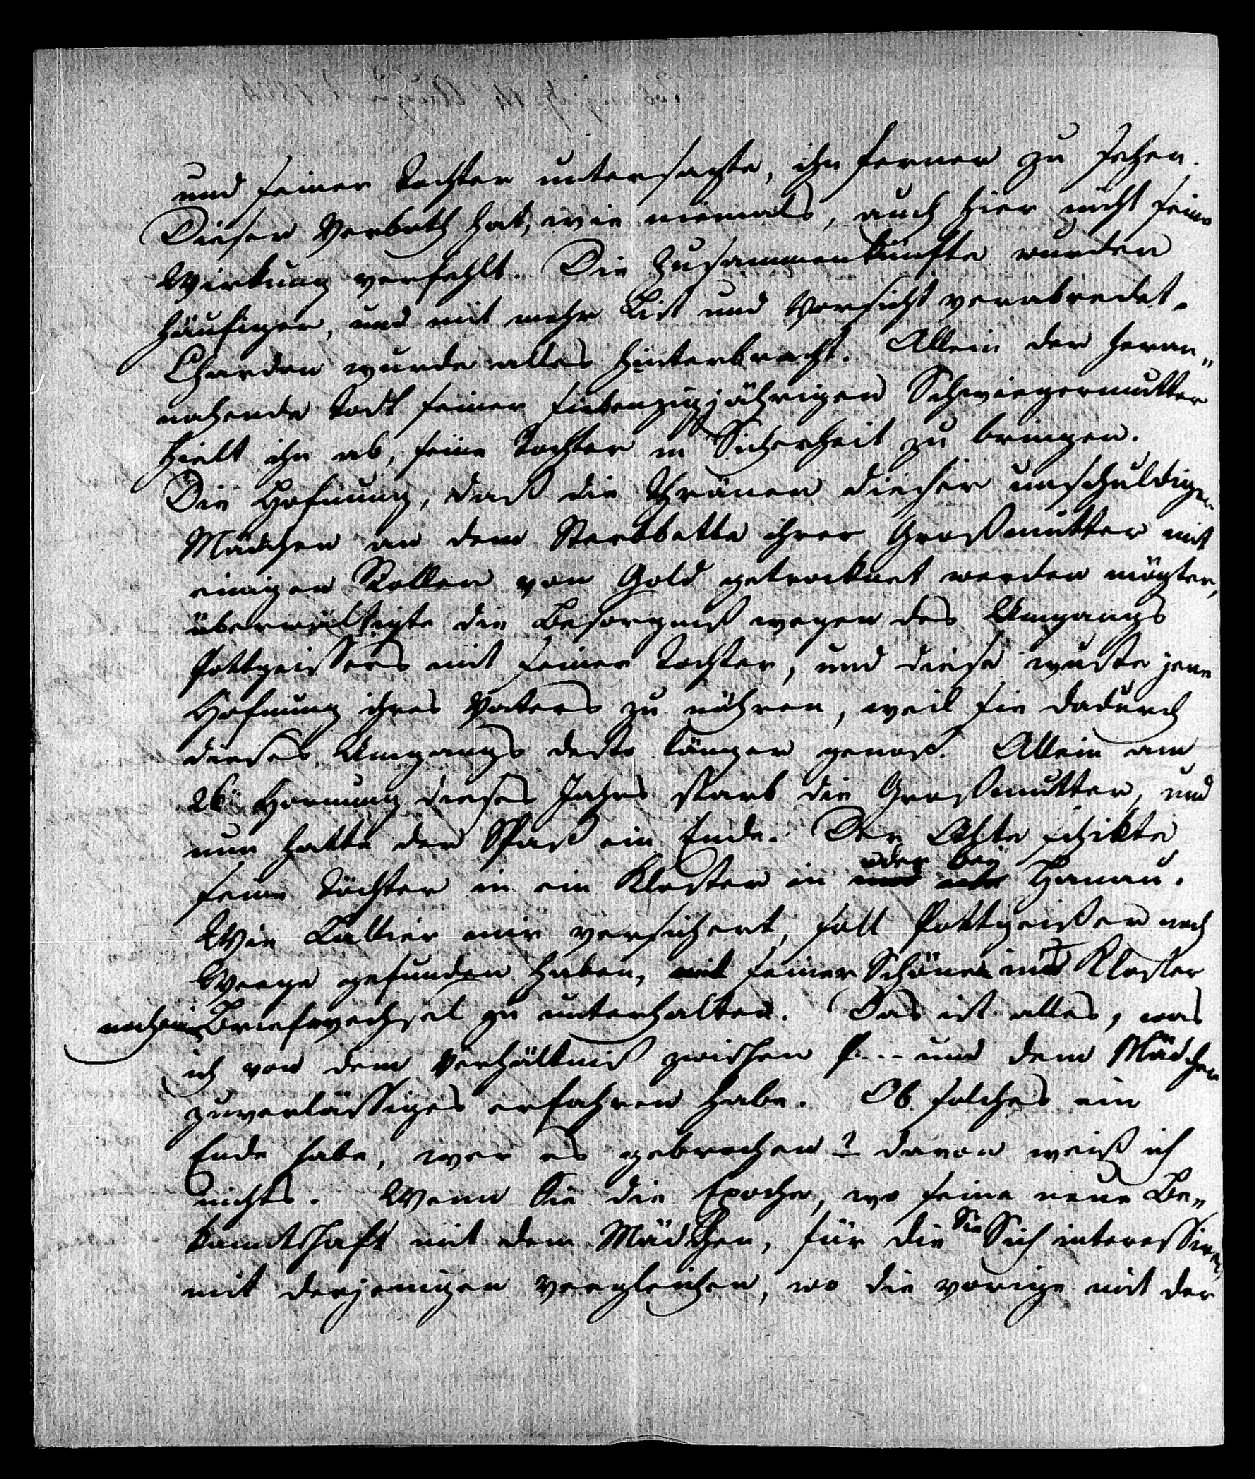 und seiner Tochter untersagte, ihn ferner zu sehen.
Dieser Verboth hat, wie niemals, auch hier nicht seine
Wirkung verfehlt. Die Zusammenkünfte wurden
häufiger, und mit mehr List und Vorsicht verabredet.
Chardon wurde alles hinterbracht. Allein der heran„
nahende Todt seiner siebenzigjährigen Schwiegermutter
hielt ihn ab, seine Tochter in Sicherheit zu bringen.
Die Hofnung, daß die Thränen dieser unschuldigen
Mädchen an dem Sterbbette ihrer Großmutter mit
einigen Rollen von Gold getrocknet werden mögten,
überwältigte die Besorgniß wegen des Umgangs
Pottgeissers mit seiner Tochter, und diese wuste jene
Hofnung ihres Vaters zu nähren, weil sie dadurch
dieses Umgangs desto länger genoß. Allein am
26. Hornung dieses Jahrs starb die Großmutter, und
nun hatte der Spaß ein Ende. Der Alte schikte
seine Töchter in ein Kloster in oder bey Hanau.
Wie Caltier mir versichert, soll Pottgeißer noch
Weege gefunden haben, mit seiner Schönen ins Kloster
noch ein Briefwechsel zu unterhalten. Das ist alles, was
ich von dem Verhältniß zwischen P.... und dem Mädchen
zuverläßiges erfahren habe. Ob solches ein
Ende habe, wer es gebrochen? davon weiß ich
nichts. Wenn Sie die Epoche, wo seine neue Be„
kanntschaft mit dem Mädchen, für die Sie Sich interessiren,
mit derjenigen vergleichen, wo die vorige mit der